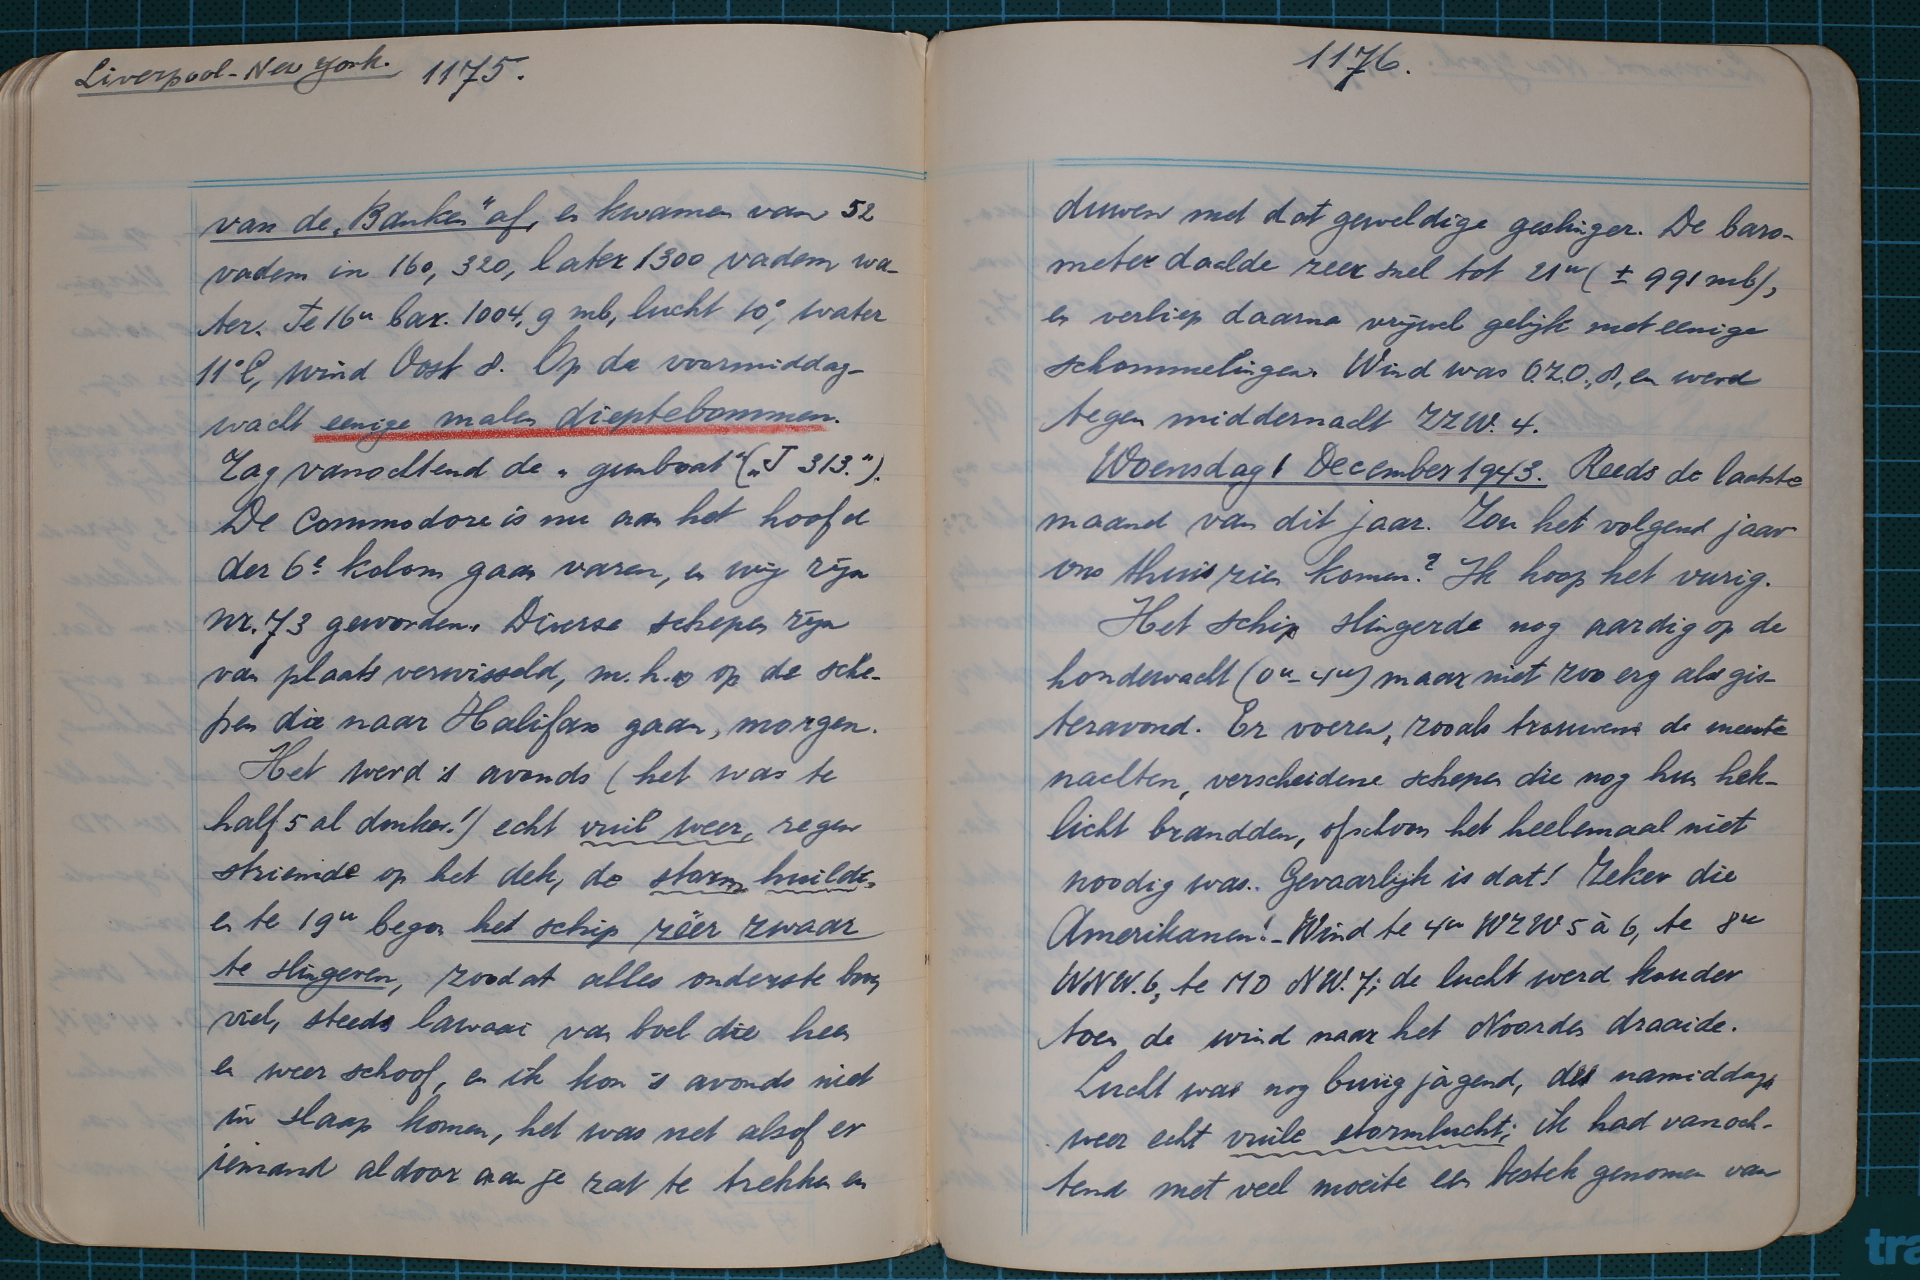 Liverpool - New York. 1175.
van de „Banken" af, en kwamen van 52
vadem in 160, 320, later 1300 vadem wa-
ter. Te 16u bar. 1004,9 mb, lucht 10°, water
11°C, wind Oost 8. Op de voormiddag-
wacht eenige malen dieptebommen.
Zag vanochtend de „gunboat" („J 313.").
De Commodore is nu aan het hoofd
der 6e kolom gaan varen, en wij zijn
nr. 73 geworden. Diverse schepen zijn
van plaats verwisseld, m.h.o op de sche-
pen die naar Halifax gaan, morgen.
Het werd 's avonds (het was te
half 5 al donker!) echt vuil weer, regen
striemde op het dek, de storm huilde,
en te 19u begon het schip zéér zwaar
te slingeren, zoodat alles onderste boven
viel, steeds lawaai van boel die heen
en weer schoof, en ik kon 's avonds niet
in slaap komen, het was net alsof er
iemand aldoor aan je zat te trekken en
1176.
duwen met dat geweldige geslinger. De baro-
meter daalde zeer snel tot 21u (± 991 mb),
en verliep daarna vrijwel gelijk met eenige
schommelingen. Wind was O.Z.O. 8, en werd
tegen middernacht ZZW. 4.
Woensdag 1 December 1943. Reeds de laatste
maand van dit jaar. Zou het volgend jaar
ons thuis zien komen? Ik hoop het vurig.
Het schip slingerde nog aardig op de
hondewacht (0u - 4u) maar niet zoo erg als gis-
teravond. Er voeren, zooals trouwens de meeste
nachten, verscheidene schepen die nog hun hek-
licht brandden, ofschoon het heelemaal niet
noodig was.. Gevaarlijk is dat! Zeker die
Amerikanen! - Wind te 4u WZW 5 à 6, te 8u
WNW. 6, te MD NW. 7; de lucht werd kouder
toen de wind naar het Noorden draaide.
Lucht was nog buiig jagend, des namiddags
weer echt vuile stormlucht; ik had vanoch-
tend met veel moeite een bestek genomen van